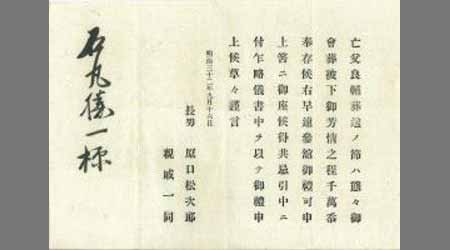 亡父良輔葬送ノ節ハ態々御
會葬被下御芳情之程千萬忝
奉存候右早速參舘御禮可申
上筈ニ御座候得共忌引中ニ
付乍略儀書中ヲ以テ御禮申
上候草々謹言
明治三十二年九月十六日
長男 原口松次郎
親戚一同
石丸 一様